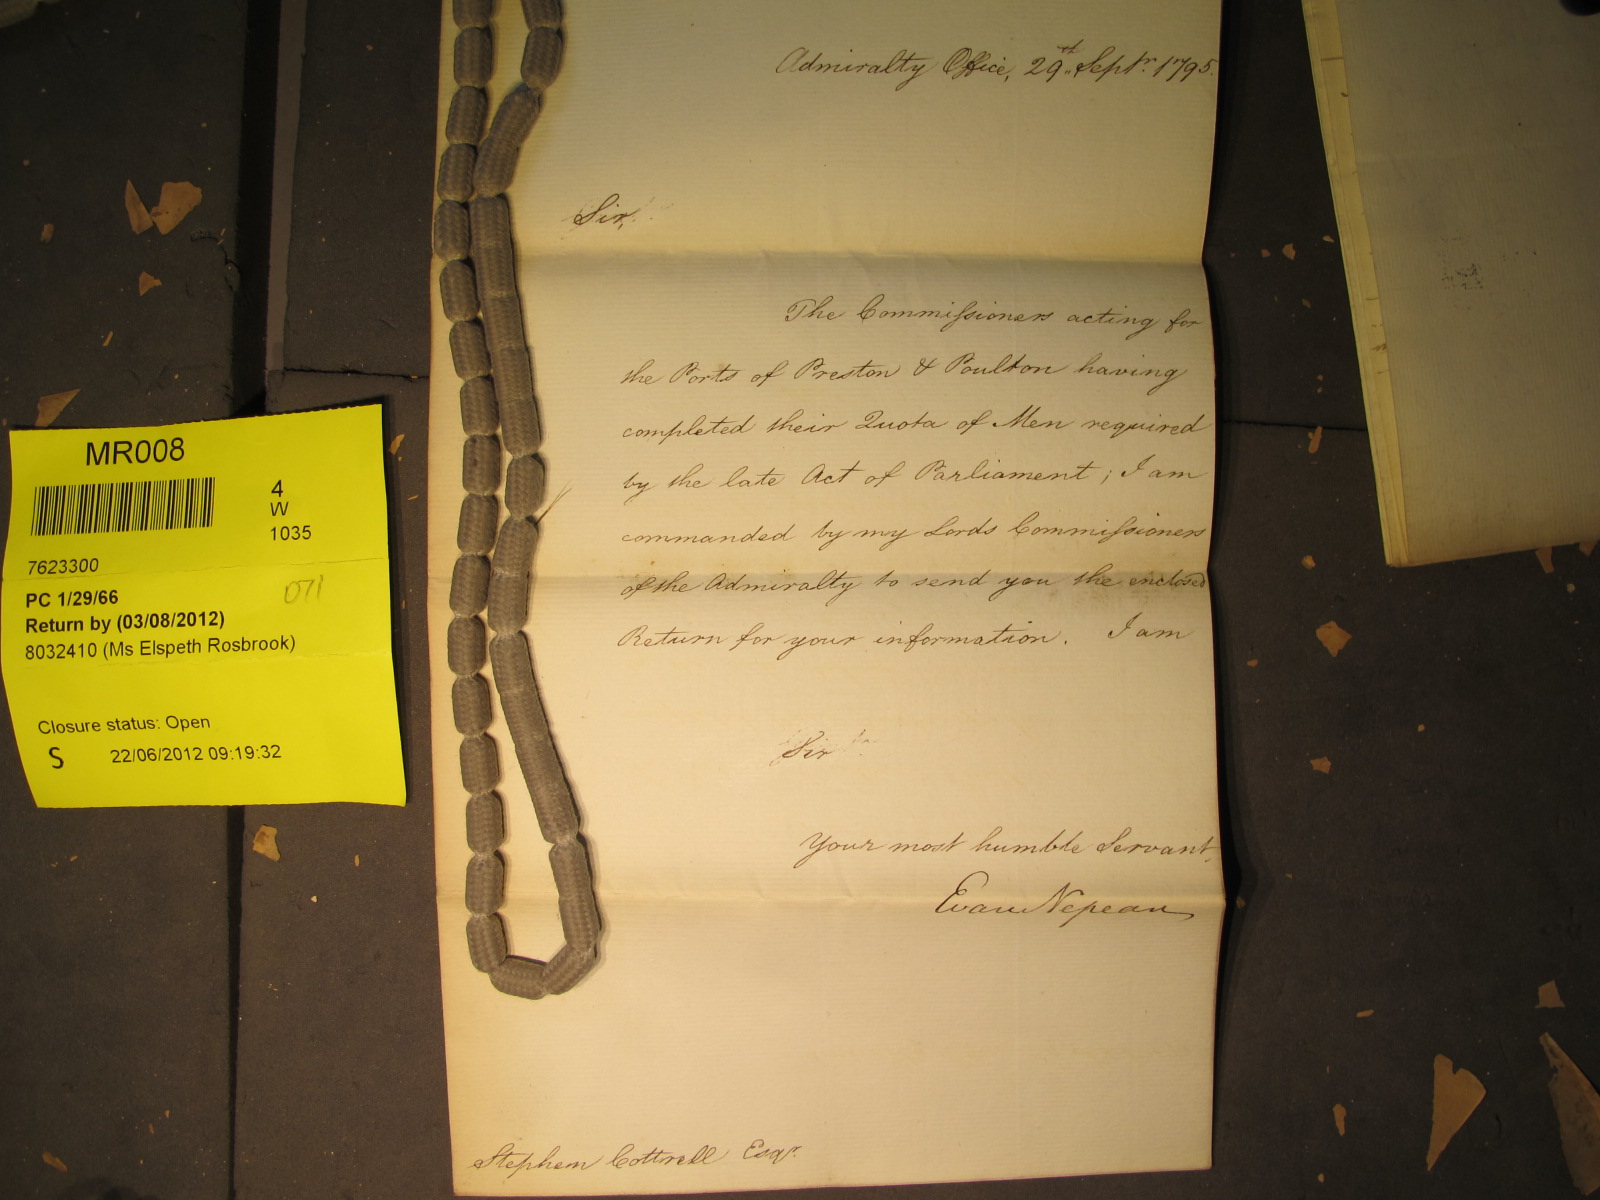 Admiralty Office, 29th Septr. 1795.
Sir,
The Commissioners acting for
the Ports of Preston & Poulton having
completed their Quota of Men required
by the late Act of Parliament; I am
commanded by my Lords Commissioners
of the Admiralty to send you the enclosed
Return for your information. I am
Sir
Your most humble Servant,
Evan Nepean
Stephen Cottrell Esqr.
MR008
4
W
1035
7623300
071
PC 1/29/66
Return by (03/08/2012)
8032410 (Ms Elspeth Rosbrook)
Closure status: Open
S 22/06/2012 09:19:32